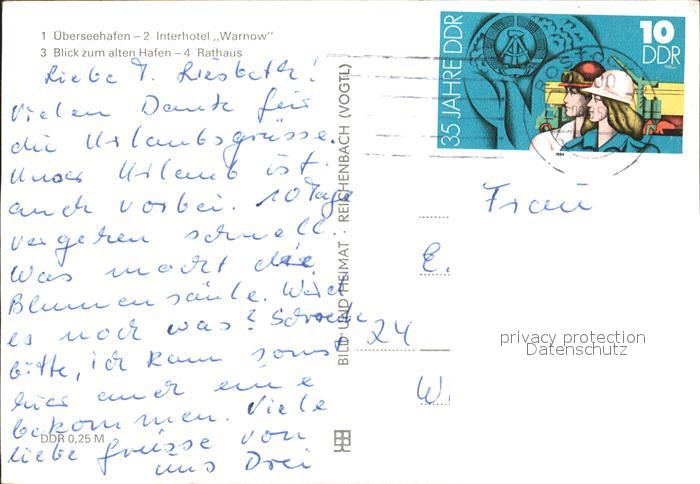 1 Überseehafen – 2 Interhotel „Warnow"
3 Blick zum alten Hafen – 4 Rathaus
Liebe T. Liesbeth!
Vielen Dank für
die Urlaubsgrüsse.
Unser Urlaub ist
auch vorbei. 10 Tage
vergehen schnell.
Was macht die
Blumensäule. Wird
es noch was? Schreibe
bitte, ich kann sonst
hier auch eine
bekommen. Viele
liebe Grüsse von
uns Drei
DDR 0,25 M
BILD UND HEIMAT · REICHENBACH (VOGTL)
35 JAHRE DDR
10
DDR
1984
ROSTOCK
Frau
E.
24
W
privacy protection
Datenschutz